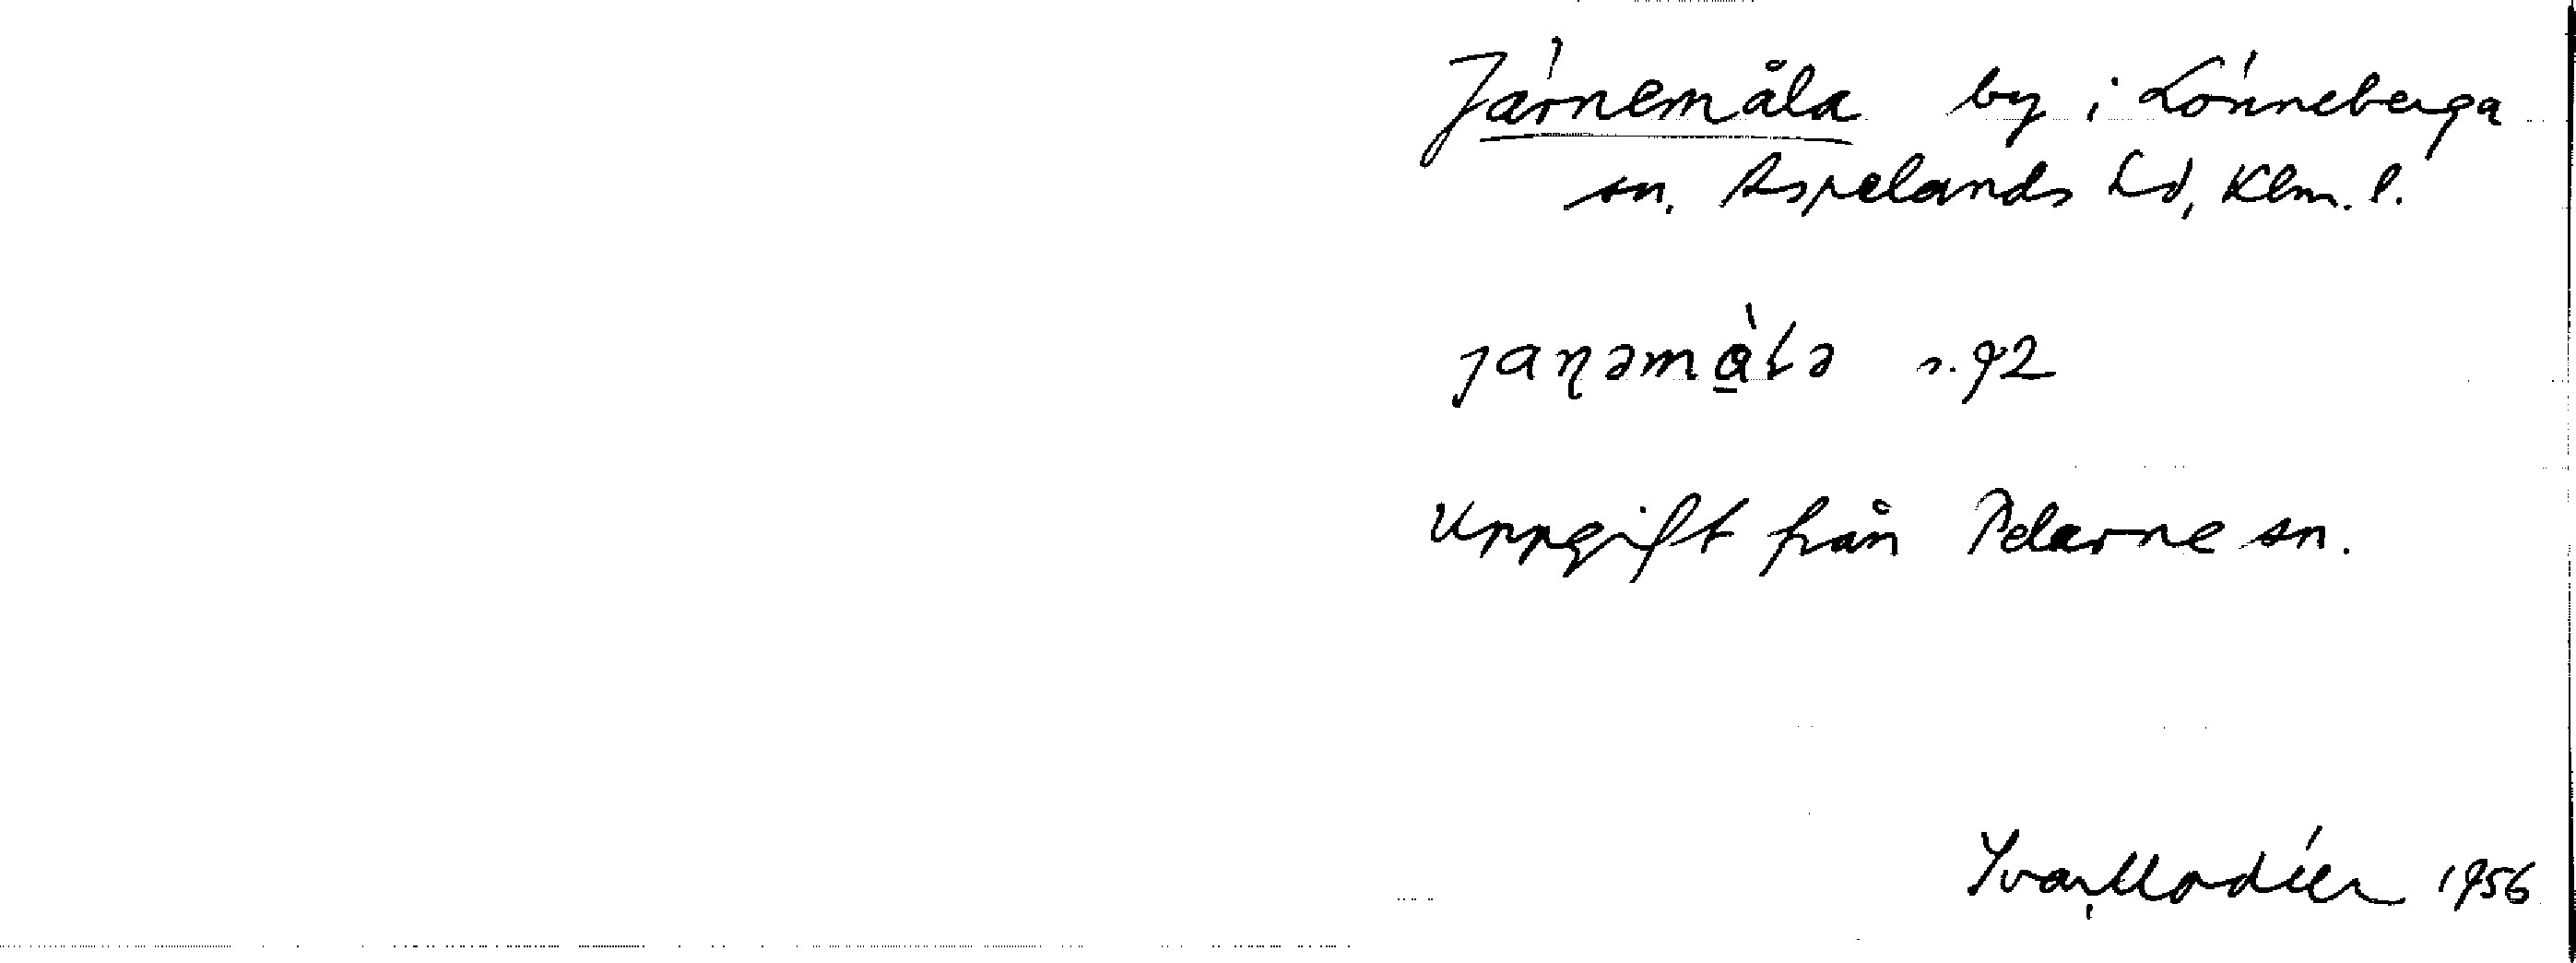 Järnemåla by i Lönneberga
sn. Aspelands hd, Klm. l.
jaɳəmàɭə s. 92
Uppgift från Pelarne sn.
Yvar Modéer 1956